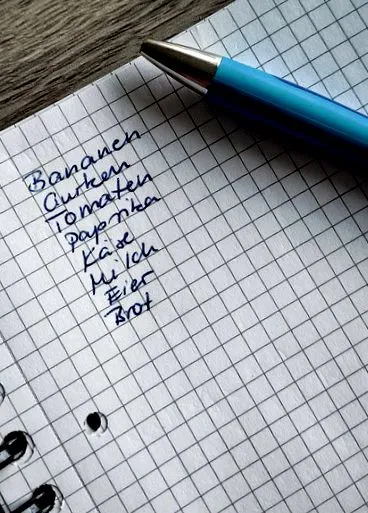 Bananen
Gurken
Tomaten
Paprika
Käse
Milch
Eier
Brot